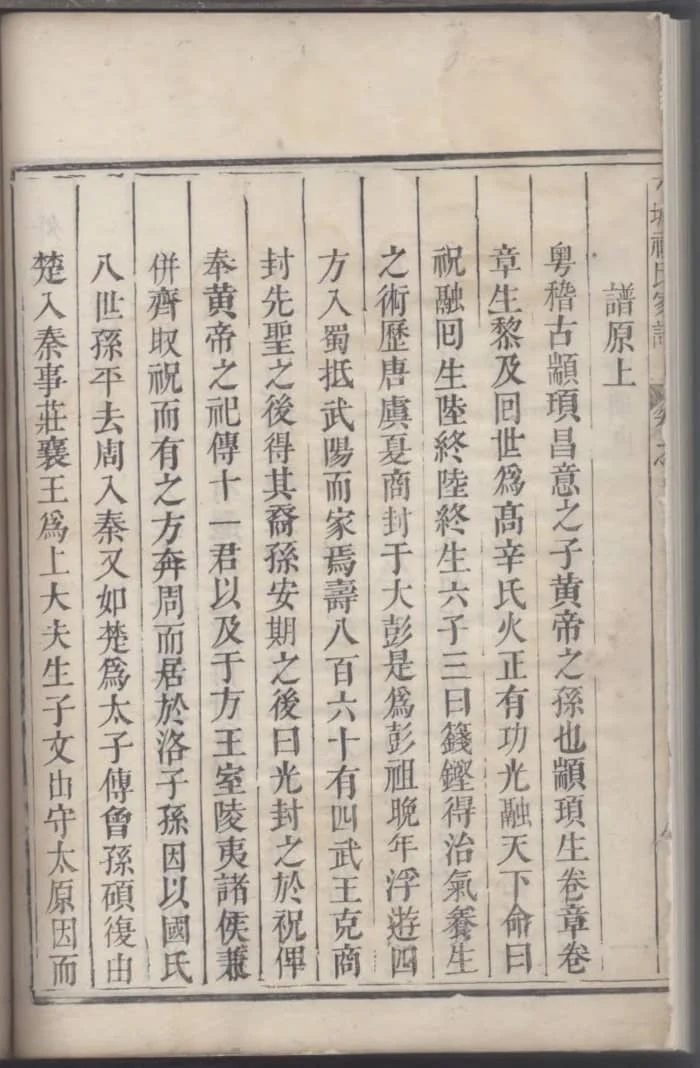 譜原上
粤稽古顓頊昌意之子黄帝之孫也顓頊生卷章卷
章生黎及回世爲高辛氏火正有功光融天下命曰
祝融回生陸終陸終生六子三曰籛鏗得治氣養生
之術歷唐虞夏商封于大彭是爲彭祖晚年浮遊四
方入蜀抵武陽而家焉壽八百六十有四武王克商
封先聖之後得其裔孫安期之後曰光封之於祝俾
奉黄帝之祀傳十一君以及于方王室陵夷諸侯兼
併齊取祝而有之方奔周而居於洛子孫因以國氏
八世孫平去周入秦又如楚爲太子傅曾孫碩復由
楚入秦事莊襄王爲上大夫生子文由守太原因而